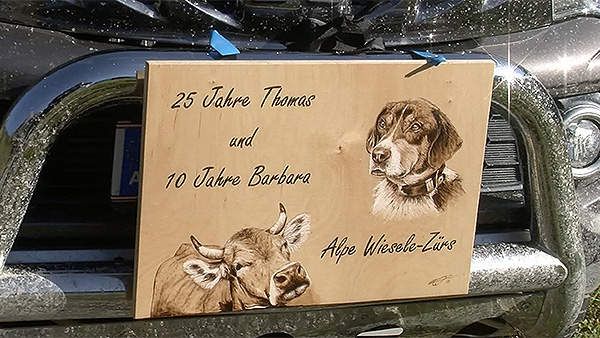 25 Jahre Thomas
und
10 Jahre Barbara
Alpe Wiesele-Zürs